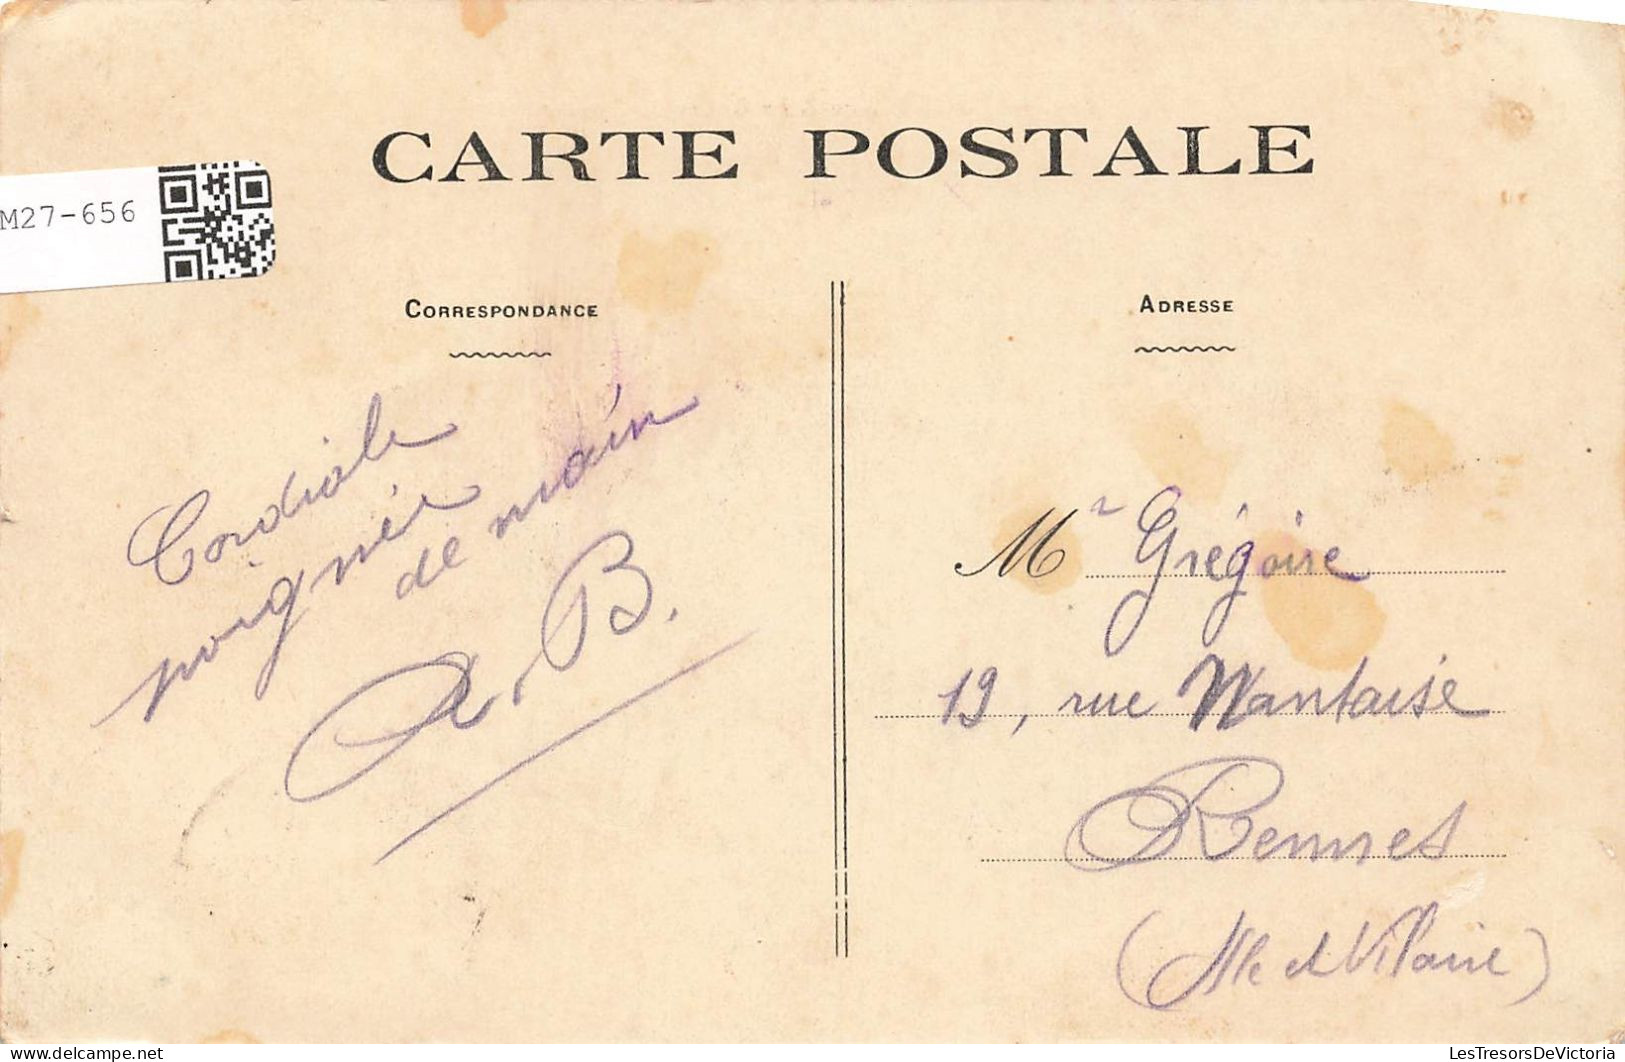 CARTE POSTALE
M27-656
CORRESPONDANCE
ADRESSE
Cordiale
poignée
de main
A. B.
Mr Grégoire
19, rue Nantaise
Rennes
(Ille et Vilaine)
LesTresorsDeVictoria